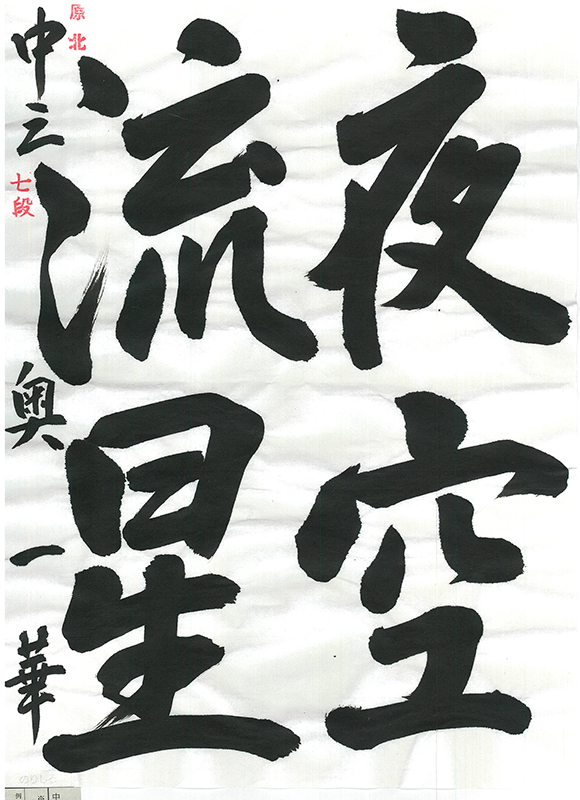 夜空
流星
原北
中三
七段
奥一華